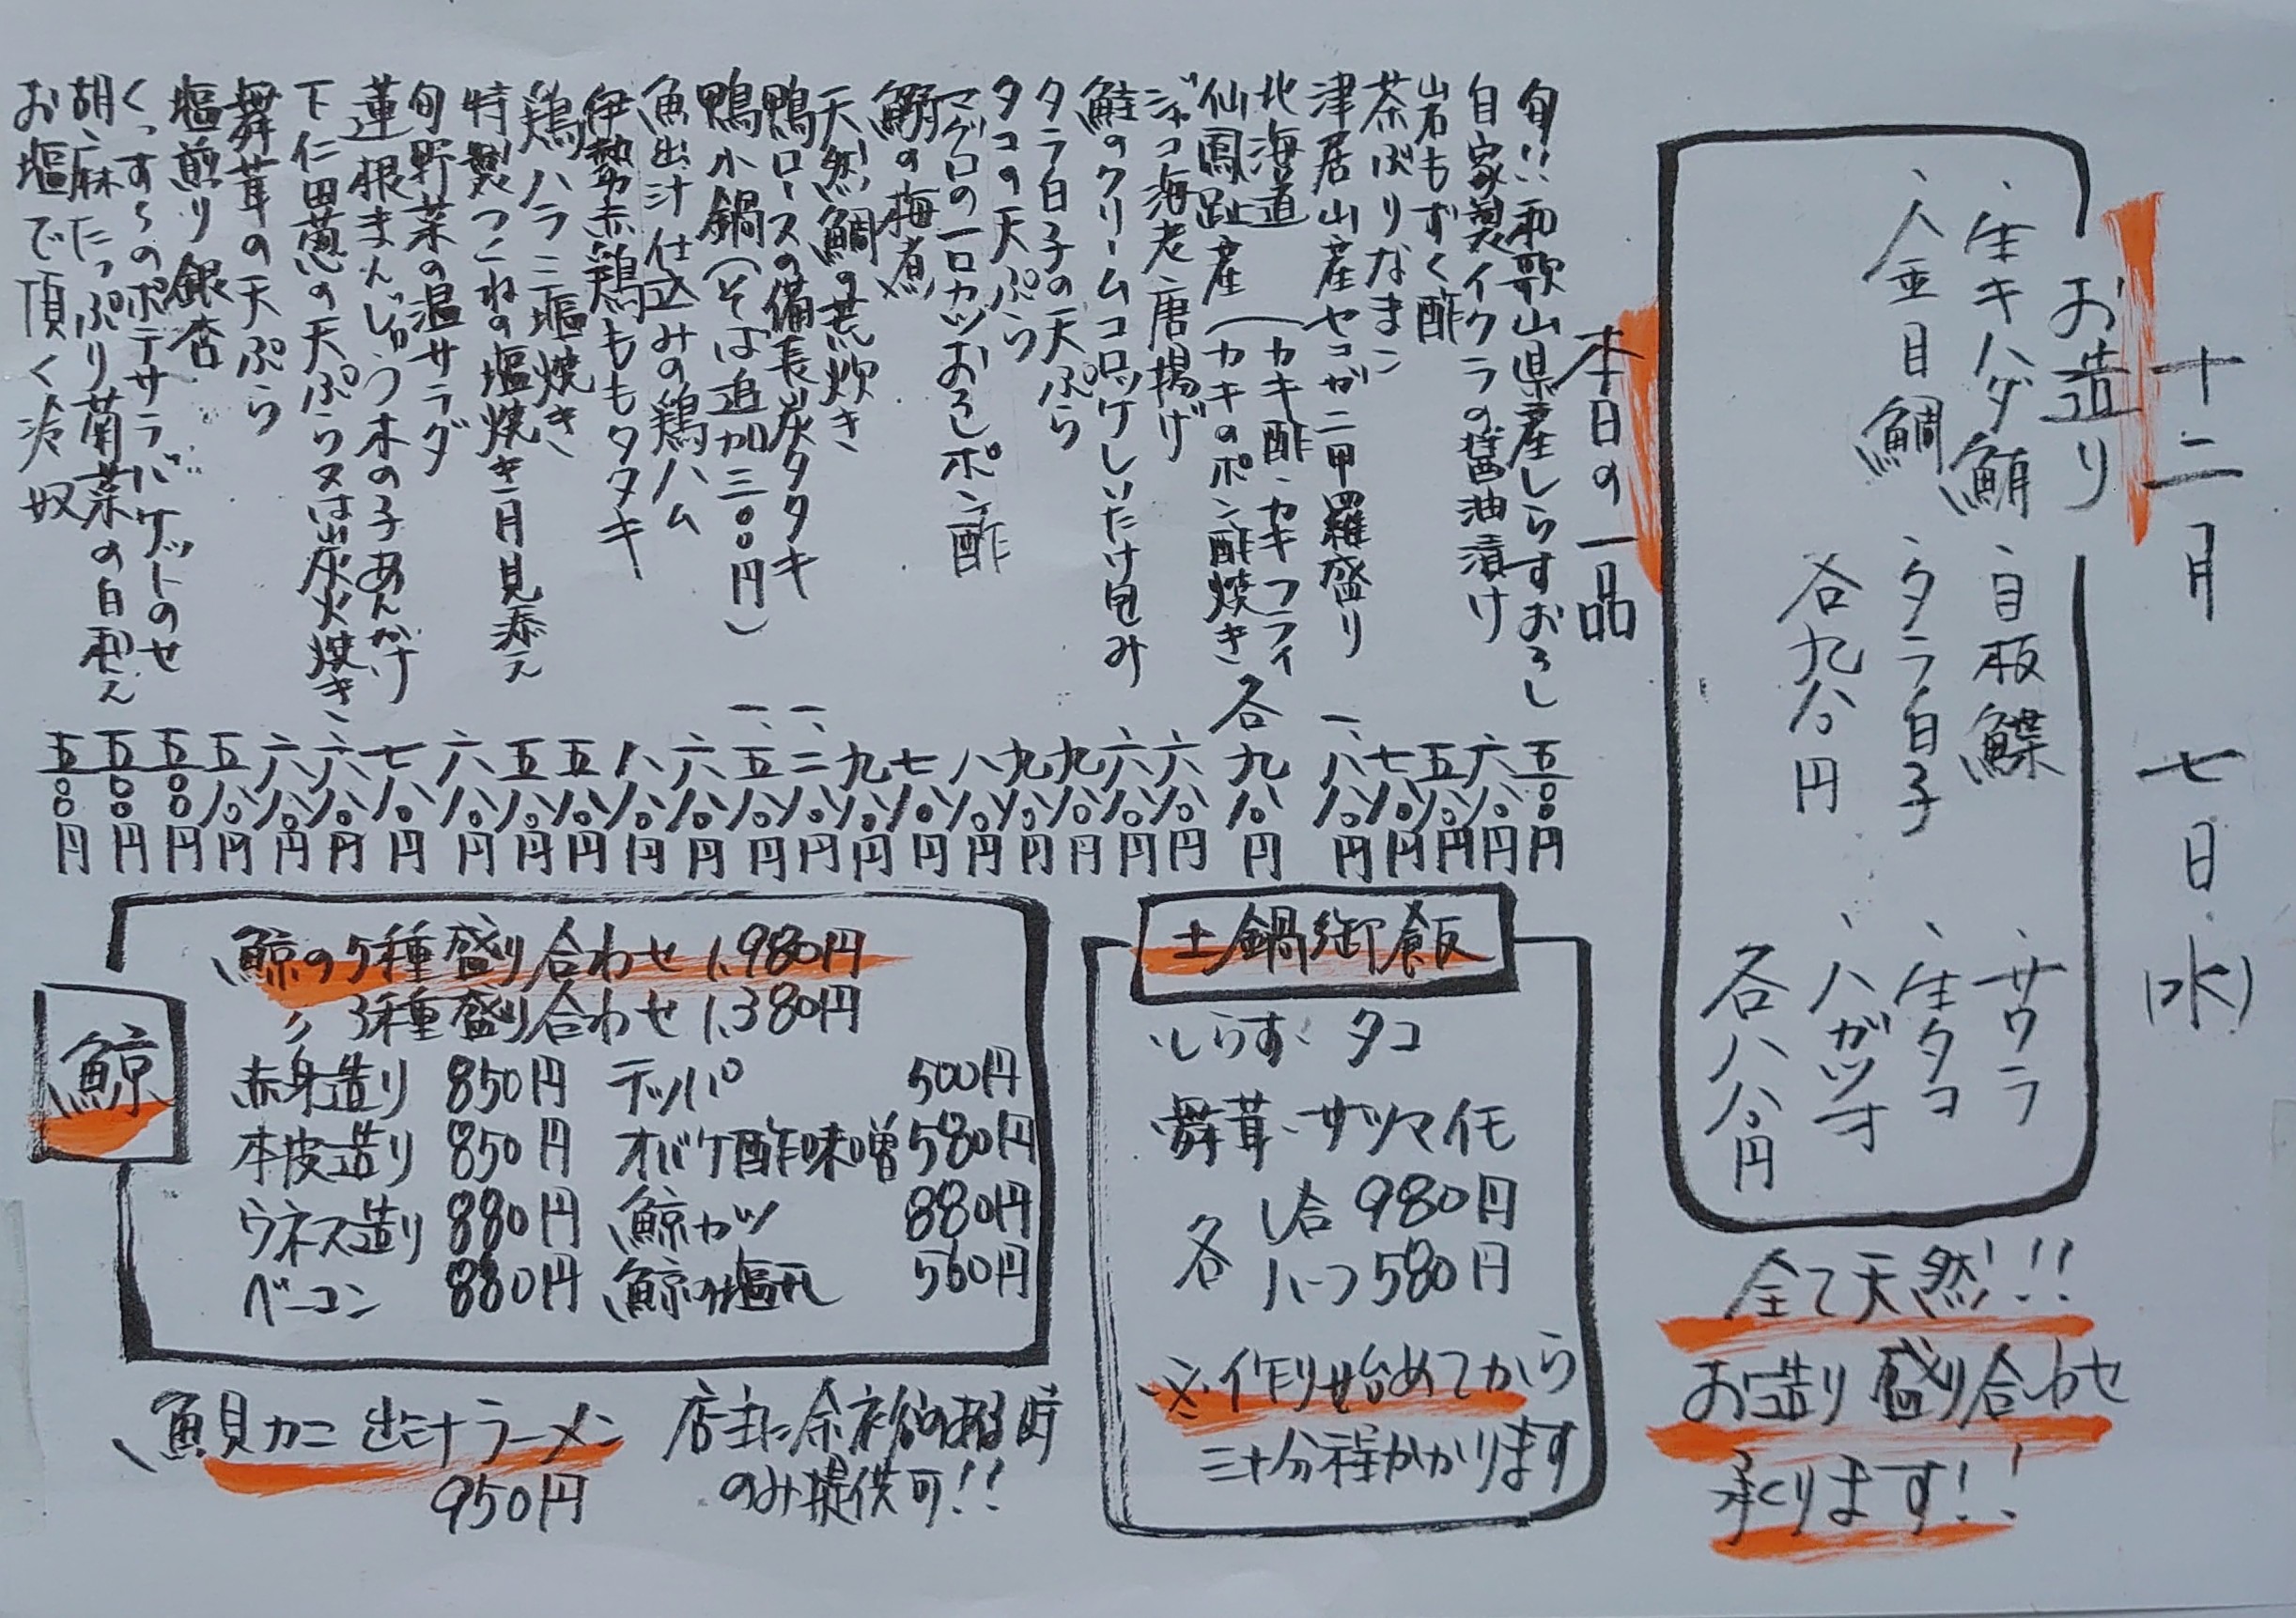 十二月 七日(水)
お造り
・生キハダ鮪 ・目板鰈 ・サワラ
・金目鯛 ・タラ白子 ・生タコ
・ハガツオ
各九八〇円
各八八〇円
全て天然!!
お造り盛り合わせ
承ります!!
本日の一品
旬!!和歌山県産しらすおろし 五〇〇円
自家製イクラの醤油漬け 六八〇円
岩もずく酢 五八〇円
茶ぶりなまこ 七八〇円
津居山産セコガニ甲羅盛り 一、八八〇円
北海道 (カキ酢・カキフライ
仙鳳趾産 (カキのポン酢焼き 各 九八〇円
ジャコ海老唐揚げ 六八〇円
鮭のクリームコロッケしいたけ包み 六八〇円
タラ白子の天ぷら 九八〇円
タコの天ぷら 九八〇円
マグロの一口カツおろしポン酢 八八〇円
鰯の梅煮 七八〇円
天然鯛の荒炊き 九八〇円
鴨ロースの備長炭タタキ 一、二八〇円
鴨小鍋(そば追加三〇〇円) 一、五八〇円
魚出汁仕込みの鶏ハム 六八〇円
伊勢赤鶏ももタタキ 八八〇円
鶏ハラミ塩焼き 五八〇円
特製つくねの塩焼き月見添え 五八〇円
旬野菜の温サラダ 六八〇円
蓮根まんじゅう木の子あんかけ 七八〇円
下仁田葱の天ぷら又は炭火焼き 六八〇円
舞茸の天ぷら 六八〇円
塩煎り銀杏 五八〇円
くっすらのポテサラバケットのせ 五〇〇円
胡麻たっぷり菊菜の白和え 五〇〇円
お塩で頂く冷奴 五〇〇円
土鍋御飯
・しらす・タコ
・舞茸・サツマイモ
各 1合 980円
ハーフ 580円
※作り始めてから
三十分程かかります
鯨
鯨の5種盛り合わせ 1,980円
〃 3種盛り合わせ 1,380円
赤身造り 850円 テッパ 500円
本皮造り 850円 オバケ酢味噌 580円
ウネス造り 880円 鯨カツ 880円
ベーコン 880円 鯨の塩煮 560円
魚貝カニ出汁ラーメン 950円
店主に余裕のある時
のみ提供可!!